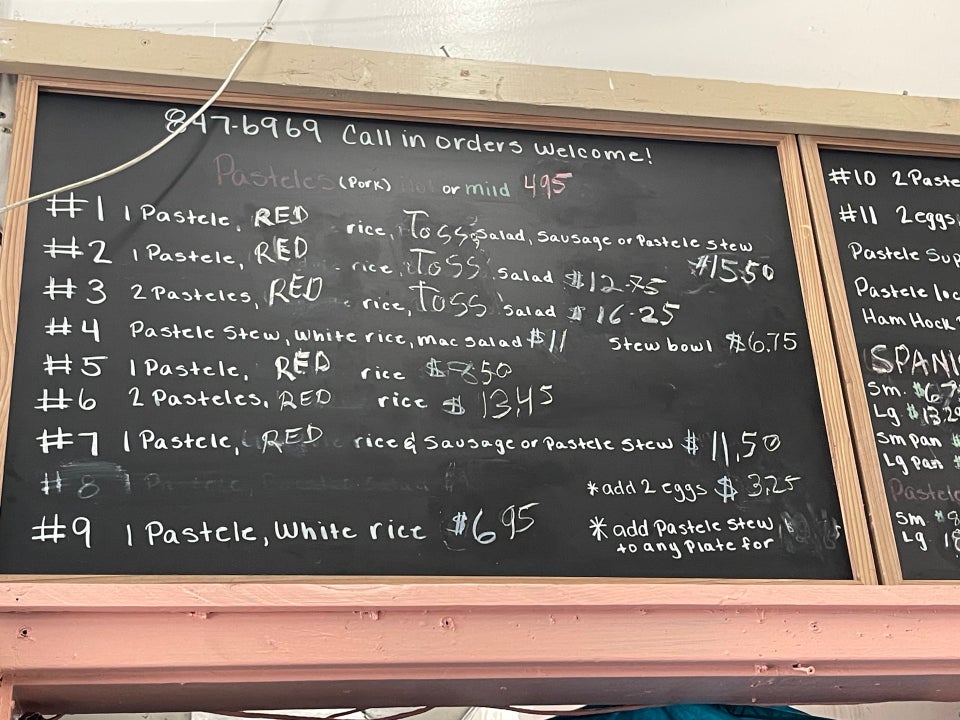 847-6969 Call in orders welcome!
Pasteles (Pork) Hot or mild 495
#1 1 Pastele, RED rice, Toss Salad, Sausage or Pastele Stew $15.50
#2 1 Pastele, RED rice, Toss Salad $12.75
#3 2 Pasteles, RED rice, Toss Salad $16.25
#4 Pastele Stew, White rice, mac salad $11 Stew bowl $6.75
#5 1 Pastele, RED rice $850
#6 2 Pasteles, RED rice $13.45
#7 1 Pastele, RED rice & Sausage or Pastele Stew $11.50
#8
*add 2 eggs $3.25
#9 1 Pastele, White rice $6 95
* add Pastele Stew
to any Plate for
#10 2 Paste
#11 2 eggs,
Pastele Sup
Pastele loc
Ham Hock
SPANI
Sm. $6.7
Lg. $13.29
Sm pan $
Lg pan $
Pastele
Sm $8
Lg. 18